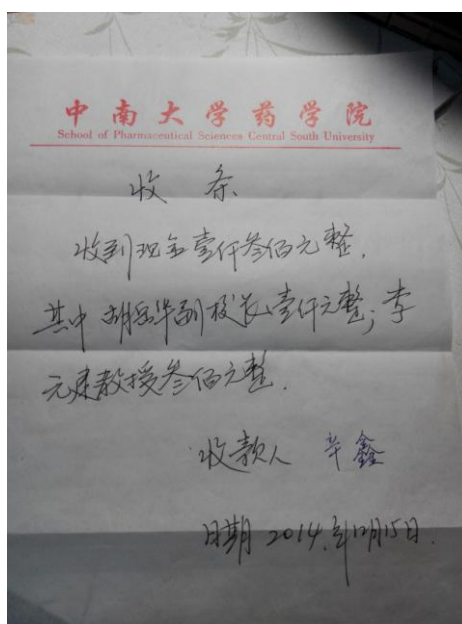 中南大学药学院
School of Pharmaceutical Sciences Central South University
收 条
收到现金壹仟叁佰元整.
其中胡岳华副校长壹仟元整;李
元建教授叁佰元整.
收款人 辛鑫
日期 2014.年12月15日.